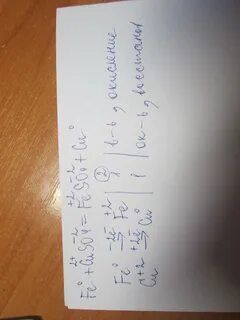 Fe⁰ + Cu²⁺SO₄²⁻ = Fe⁺²SO₄²⁻ + Cu⁰
Fe⁰ –2e⁻→ Fe⁺² | 2 | 1 | в-ль, окисление
Cu⁺² +2e⁻→ Cu⁰ | 1 | ок-ль, восстанов